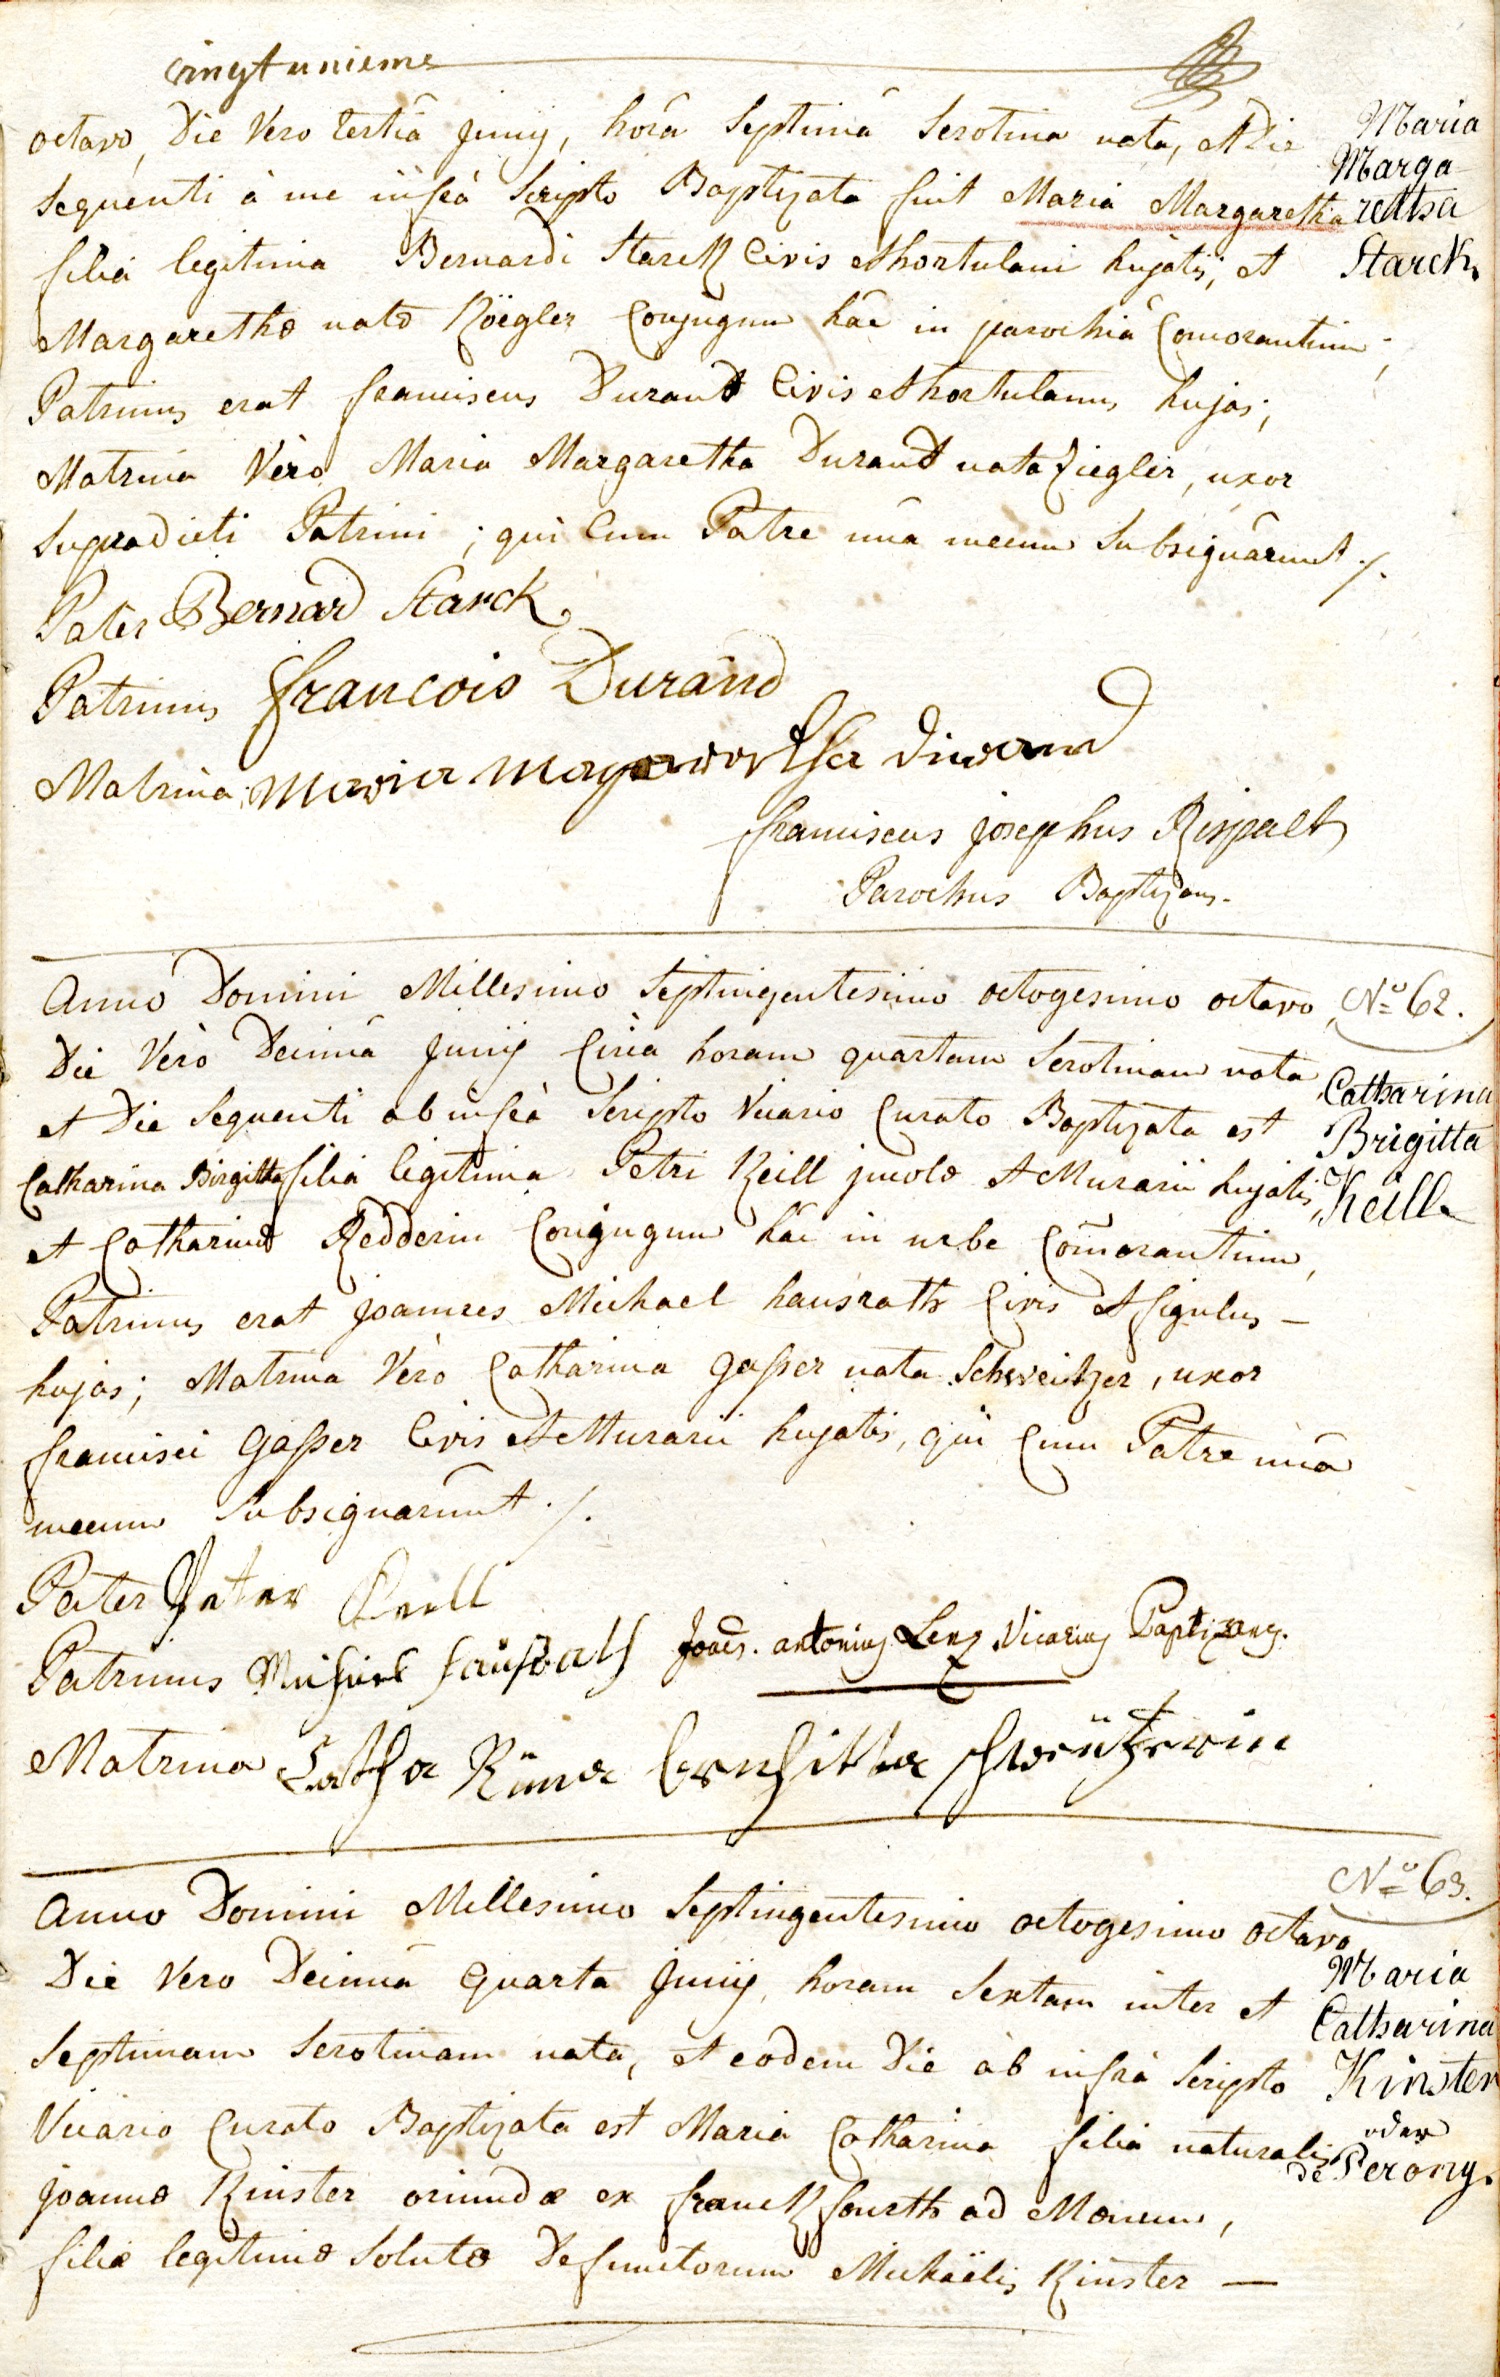 vingtunieme
octavo, Die Vero tertiâ Junij, horâ Septimâ Serotina nata, et Die
Sequenti à me infrà Scripto Baptizata fuit Maria Margaretha
filia legitima Bernardi Starck Civis et hortulani hujatis; et
Margarethæ natæ Köegler Conjugum hâc in parochiâ Comorantium;
Patrinus erat franciscus Durand Civis et hortulanus hujas;
Matrina Vero Maria Margaretha Durand nata Ziegler, uxor
Supradicti Patrini; qui Cum Patre unâ mecum Subsignârunt ./.
Maria
Marga-
retha
Starck.
Pater Bernard Starck
Patrinus francois Durand
Matrina: Maria margaretha durand
franciscus josephus Rispalt
Parochus Baptizans.
Anno Domini Millesimo Septingentesimo octogesimo octavo
Die Verò Decimâ Junij Circa horam quartam Serotinam nata
et Die Sequenti ab infrà Scripto Vicario Curato Baptizata est
Catharina Birgitta filia legitima Petri Keill incolæ et Murarii hujatis
et Catharinæ Redderin Conjugum hâc in urbe Com̄orantium,
Patrinus erat joannes Michael hausrath Civis et figulus –
hujas; Matrina Verò Catharina Gasser nata Schweitzer, uxor
francisci Gasser Civis et Murarii hujatis, qui Cum Patre unâ
mecum Subsignarunt ./.
No 62.
Catharina
Brigitta
Keill
Pater Peter Keill
Patrinus Michael haußrath Joaēs. antonius Lenz Vicarius Baptizans.
Matrina Catha Rina schweitzerin
Anno Domini Millesimo Septingentesimo octogesimo octavo
Die Vero Decimâ Quarta Junij, horam Sextam inter et
Septimam Serotinam nata, et eodem Die ab infrà Scripto
Vicario Curato Baptizata est Maria Catharina filia naturalis
joannæ Kinster oriundæ ex franckfourth ad Mœnum,
filiæ legitimæ Solutæ Defunctorum Michaëlis Kinster —
No 63.
Maria
Catharina
Kinster
oder
de Perony.